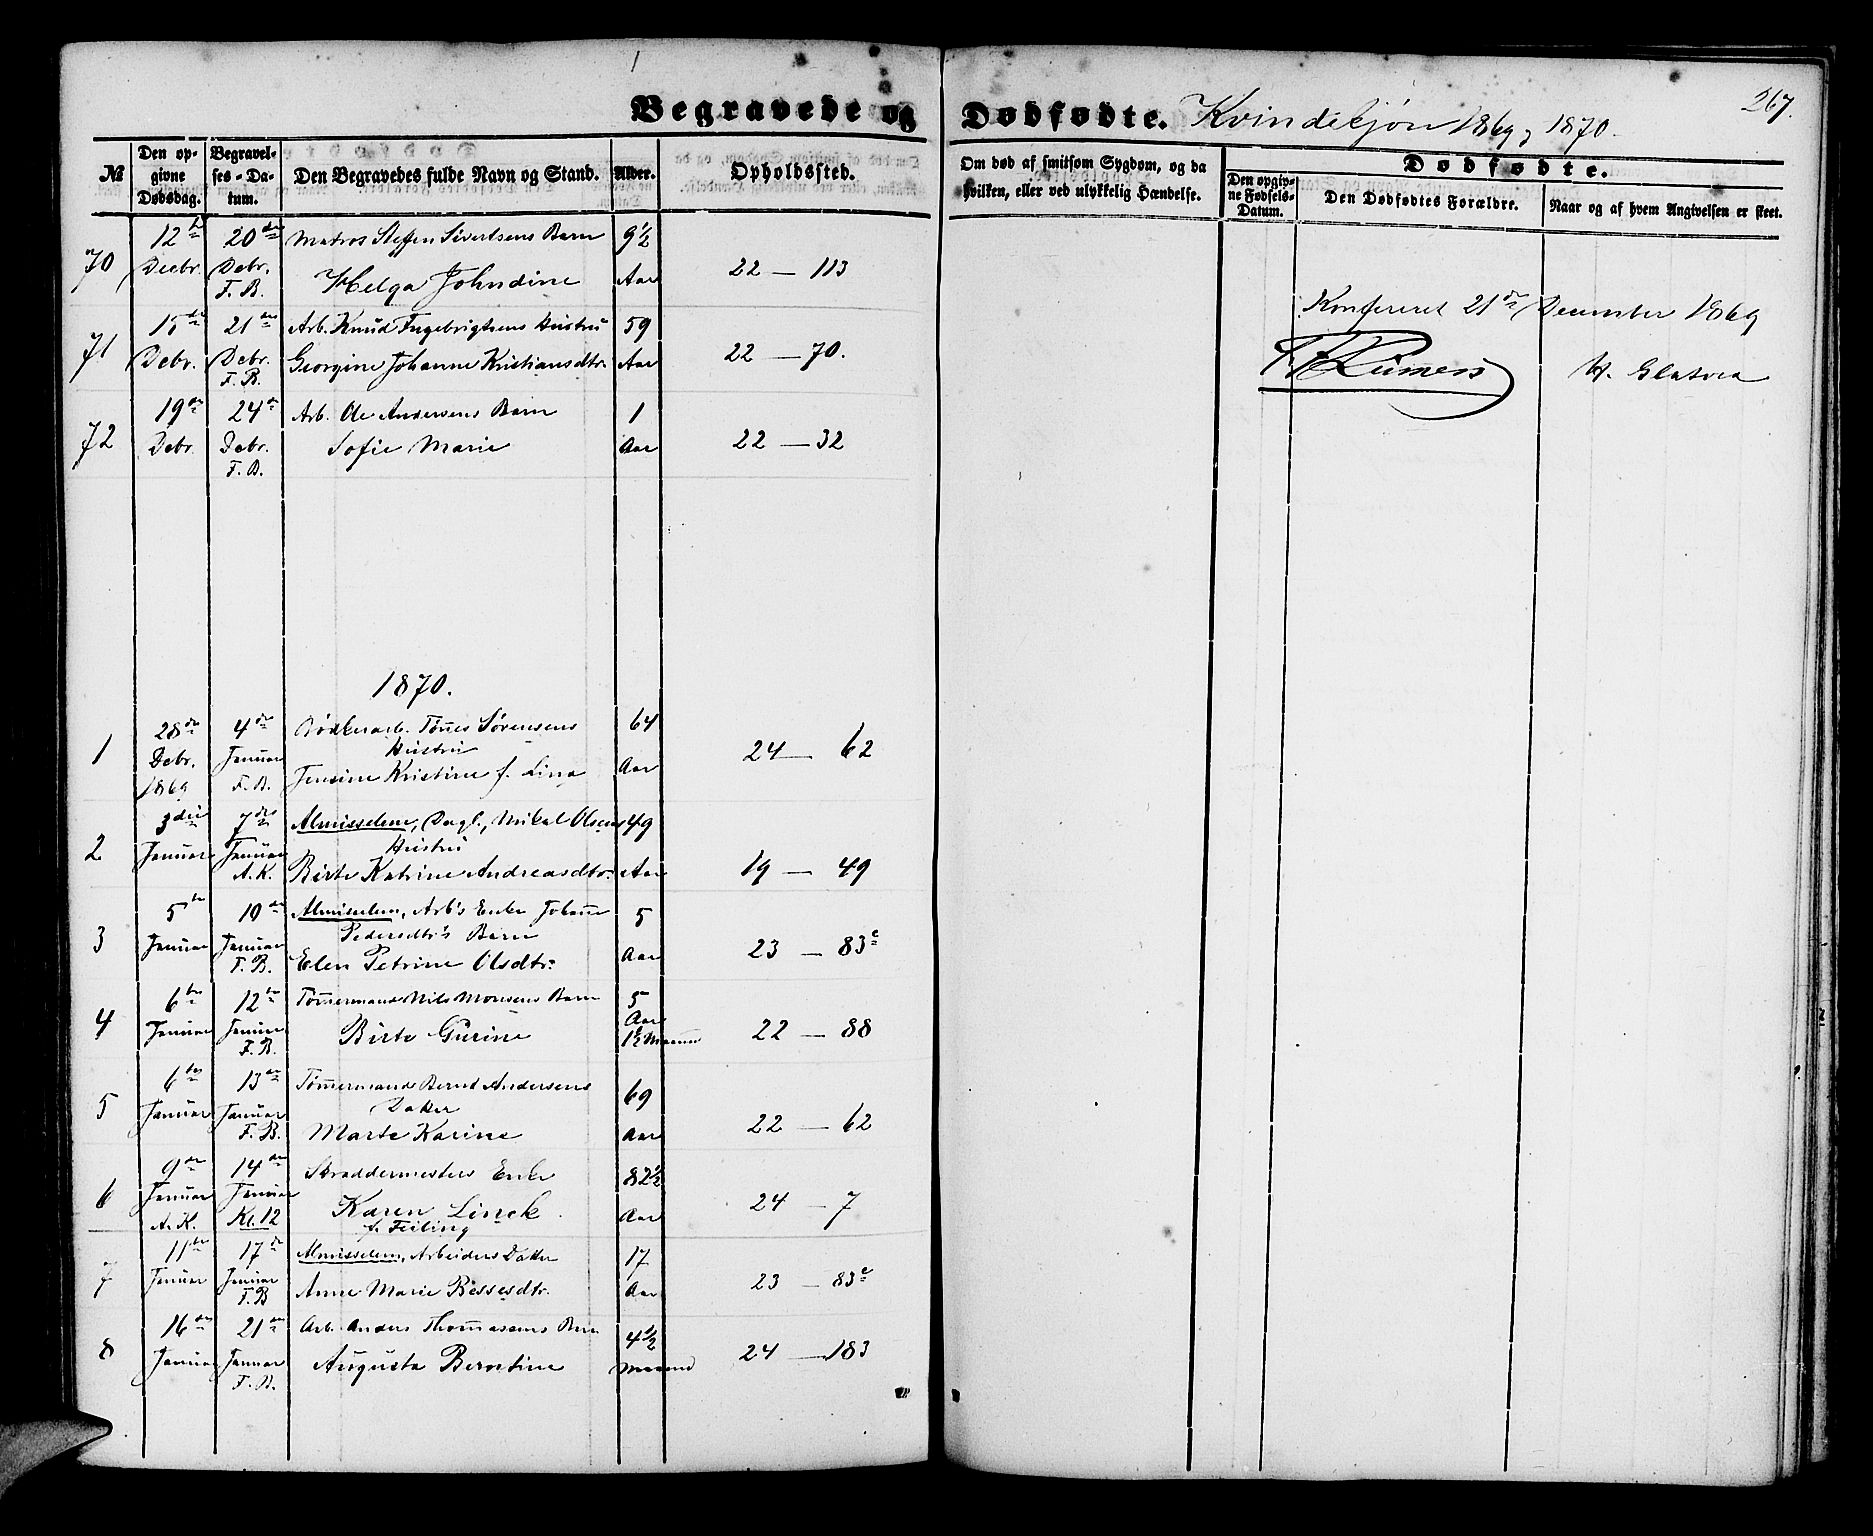 Begravede og Dødfødte. Kvindekjøn 1869, 1870. 267.
№ Den opgivne Dødsdag. Begravelses-Datum. Den Begravedes fulde Navn og Stand. Alder. Opholdssted. Om død af smitsom Sygdom, og da hvilken, eller ved ulykkelig Hændelse. Dødfødte. Den opgivne Fødsels-Datum. Den Dødfødtes Forældre. Naar og af hvem Angivelsen er skeet.
70 12te Decbr. 20de Debr. F. B. Matros Steffen Sivertsens Barn
Helga Johndine 9½ Aar 22 — 113
Konfereret 21de December 1869
71 15de Debr. 21de Debr. F. B. Arb. Knud Ingebrigtsens Hustru
Georgine Johanne Kristiansdtr. 59 Aar 22 — 70.
72 19de Debr. 24de Debr. F. B. Arb. Ole Andersens Barn
Sofie Marie 1 Aar 22 — 32
1870.
1 28de Debr. 1869 4de Januar F. B. Bødkerarb. Tønnes Sørensens
Hustru
Jensine Kristine f. Lina 64 Aar 24 — 62
2 3die Januar 7de Januar A. K. Almisselem, Dagl., Mikal Olsens
Hustru
Birte Katrine Andreasdtr. 49 Aar 19 — 49
3 5te Januar 10de Januar F. B. Almisselem, Arb's Enke Johanne
Pedersdtr's Barn
Elen Petrine Olsdtr. 5 Aar 23 — 83c
4 6te Januar 12te Januar F. B. Tømmermand Nils Monsens Barn
Birte Gurine 5 Aar 1½ Maaned 22 — 88
5 6te Januar 13de Januar F. B. Tømmermand Bernt Andersens
Datter
Marte Karine 69 Aar 22 — 62
6 9de Januar A. K. 14de Januar Kl. 12 Skræddermesters Enke
Karen Linck
f. Feiling 82½ Aar 24 — 7
7 11te Januar 17de Januar F. B Almisselem, Arbeiders Datter
Anne Marie Bessesdtr. 17 Aar 23 — 83c
8 16de Januar 21de Januar F. B. Arb. Anders Thomassens Barn
Augusta Berntine 4½ Maaned 24 — 183